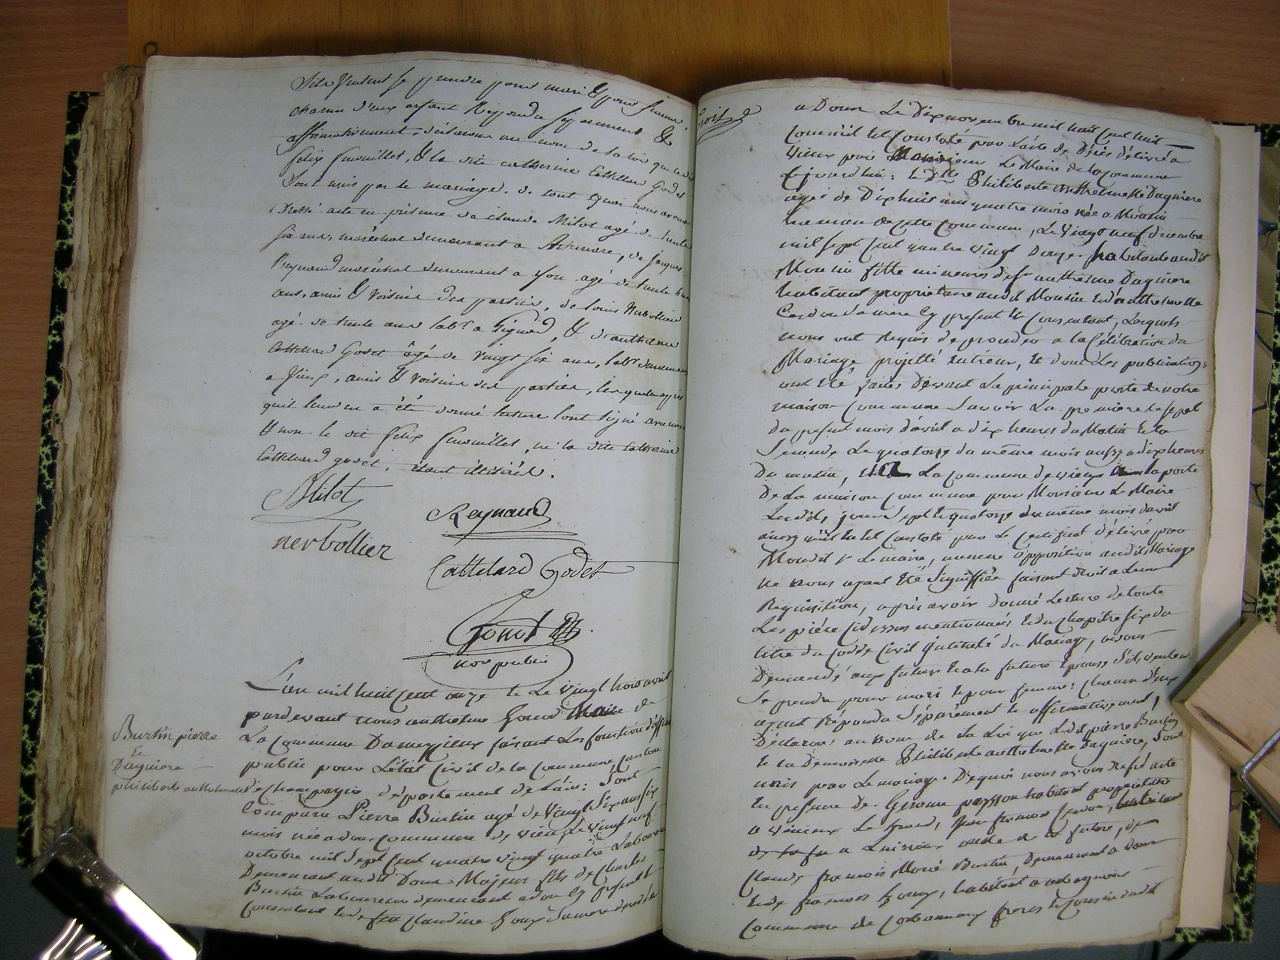 s'ils veulent se prendre pour mari & pour femme
chacun d'eux ayant Repondu separement &
affirmativement, declarons au nom de la loi que
felix & la dite catherine Cattelard Godet
sont unis par le mariage. de tout quoi nous avons
dressé acte en présence de claude Milot agé de trente
six ans, maréchal demeurant a de jacques
Reynaud maréchal demeurant a agé de trente
ans, amis & voisins des parties, de louis Nerbollier
agé de trente ans lab.r a & d'anthelme
Cattelard Godet âgé de vingt six ans, lab.r demeurant
a amis & voisins des parties, lesquels apres
qu'il leur en a été donné lecture l'ont signé avec nous
& non le dit felix ni la dite catherine
Cattelard godet, étant illitérés.
Milot
Reynaud
nerbollier
Cattelard Godet
nor public
L'an mil huit cent onze & Le vingt trois avril
pardevant nous anthelme Maire de
La Commune Dameyzieux faisant Les fonctions d'officier
public pour L'état Civil de la Commune, Canton
de Champagne département de L'ain: Sont
Comparu Pierre Burtin agé de Vingt Six ans six
mois né a don Commune de vieu, Le Vingt neuf
octobre mil Sept Cent quatre vingt quatre Laboureur
Demeurant audit Don. Majeur fils de Charles
Burtin Laboureur demeurant a don Cy présent &
Consentant & de feue Claudine Sa mere décédée
Burtin pierre
&
Daguiere
philiberte anthelmette
a Don Le Dix novembre mil huit Cent huit
Comme il est Constaté par L'acte de Décès délivré a
vieux par Monsieur Le Maire de la Commune
Et D.lle Philiberte anthelmette Daguiere
agée de Dix huit ans quatre mois née a
hameau de Cette Commune, Le Vingt neuf décembre
mil Sept Cent quatre vingt Douze habitante audit
fille mineure de S.r anthelme Daguiere
habitant propriétaire audit & d'anthelmette
Sa mere Cy présent & Consentant, Lesquels
nous ont Requis de procéder a la Célébration du
Mariage projetté entr'eux, & dont Les publications
ont Eté faites Devant La principale porte de notre
maison Commune Savoir La premiere Le Sept
du présent mois d'avril a dix heures du Matin & la
Seconde Le quatorze du même mois aussi a dix heures
du matin, La Commune de vieux a la porte
De La maison Commune par Monsieur Le Maire
Les dits jours Sept & quatorze du même mois d'avril
ainsi qu'il est Constaté par Le Certificat délivré par
Mondit S.r Le maire, aucune opposition audit Mariage
ne nous ayant Eté Signiffiée faisant droit a Leur
Requisition, après avoir donné Lecture de toute
Les piéces Cidessus mentionnées & du Chapitre Six du
titre du Code Civil intitulé du Mariage, avons
Demandé aux futur & a la future Epouse S'ils veulent
Se prendre pour mari & pour femme; Chacun d'eux
ayant Répondu Séparément & affirmativement,
Déclarons au nom de La Loi que Ledit pierre Burtin
& la Demoiselle Philiberte anthelmette Daguiere, Sont
unis par Le mariage. De quoi nous avons dressé acte
En présence de Gerome habitant propriétaire
a Le Grand, françois
a oncle du futur, de
Claude françois Burtin, Demeurant a Don
& de françois habitant a
Commune de freres & Cousin dudit